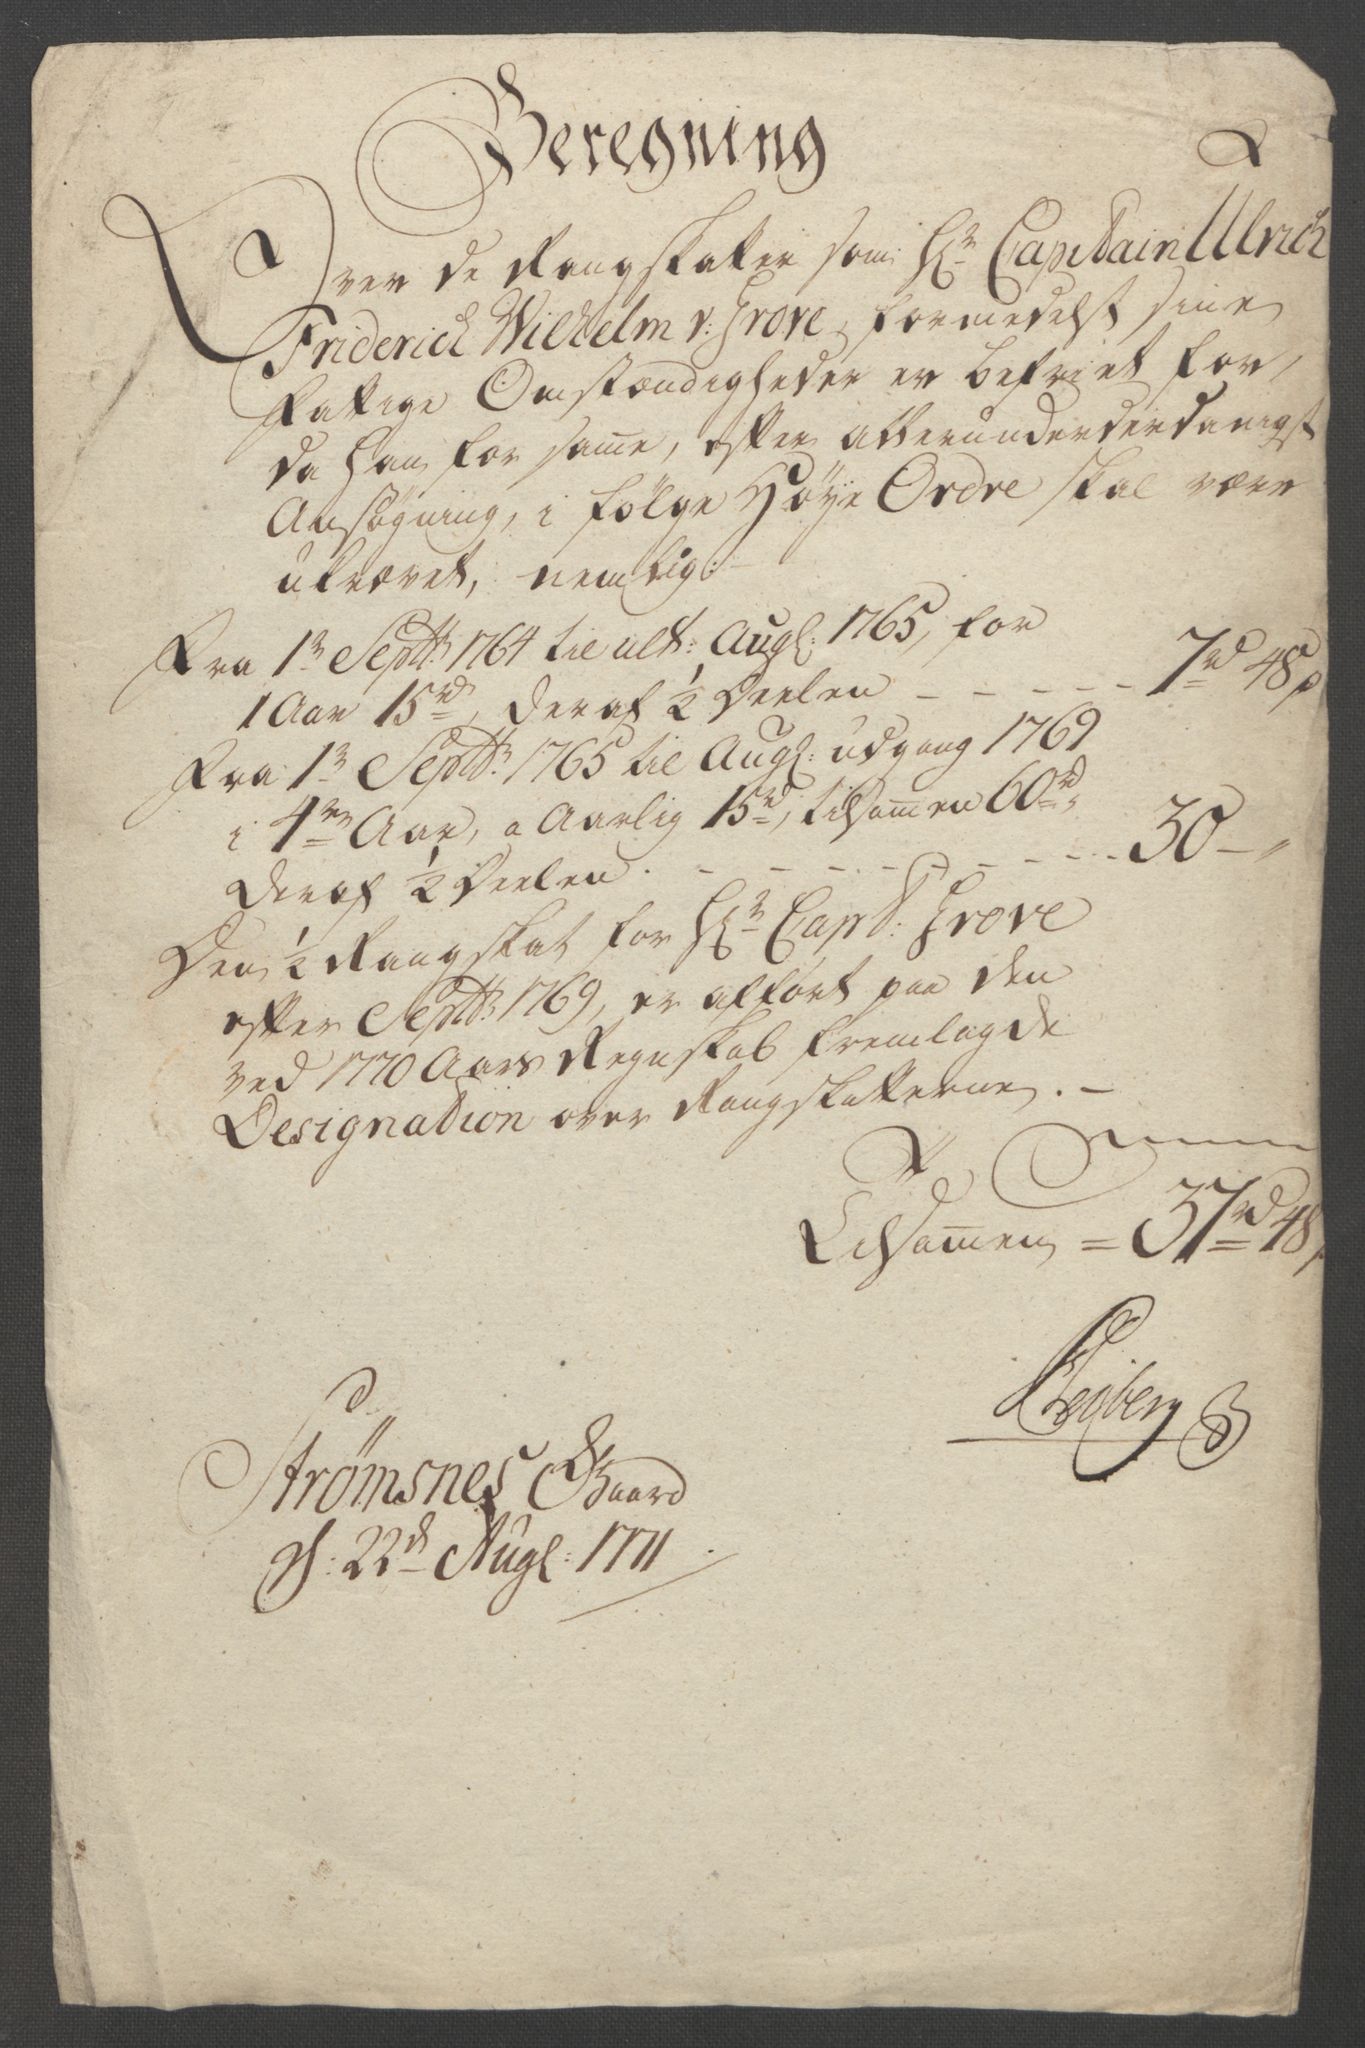 Beregning
Over de Rangskatter som Hr Capitain Ulrich
Friderich Wilhelm v: Grove, formedelst sine
fattige Omstændigheder er befriet for,
da han for samme, efter allerunderderdanigst
Ansøgning, i følge Høye Ordre skal være
ukrævet, nemlig:
Fra 1n Septbr: 1764 til ult: Aug: 1765, for
1 Aar 15rd, deraf ½ Deelen - - - - - 7rd 48s
Fra 1n Septbr: 1765 til Aug: udgang 1769
i 4re Aar, a Aarlig 15rd, tilsammen 60rd,
deraf ½ Deelen. - - - - - - - - 30 - "
Den ½ Rangskat for Hr Capt: Grove
efter Septbr: 1769, er afført paa den
ved 1770 Aars Regnskab fremlagde
Designation over Rangskatterne. -
Tilsammen = 37rd 48s
Strømsnes Gaard
d: 22d Aug: 1771.